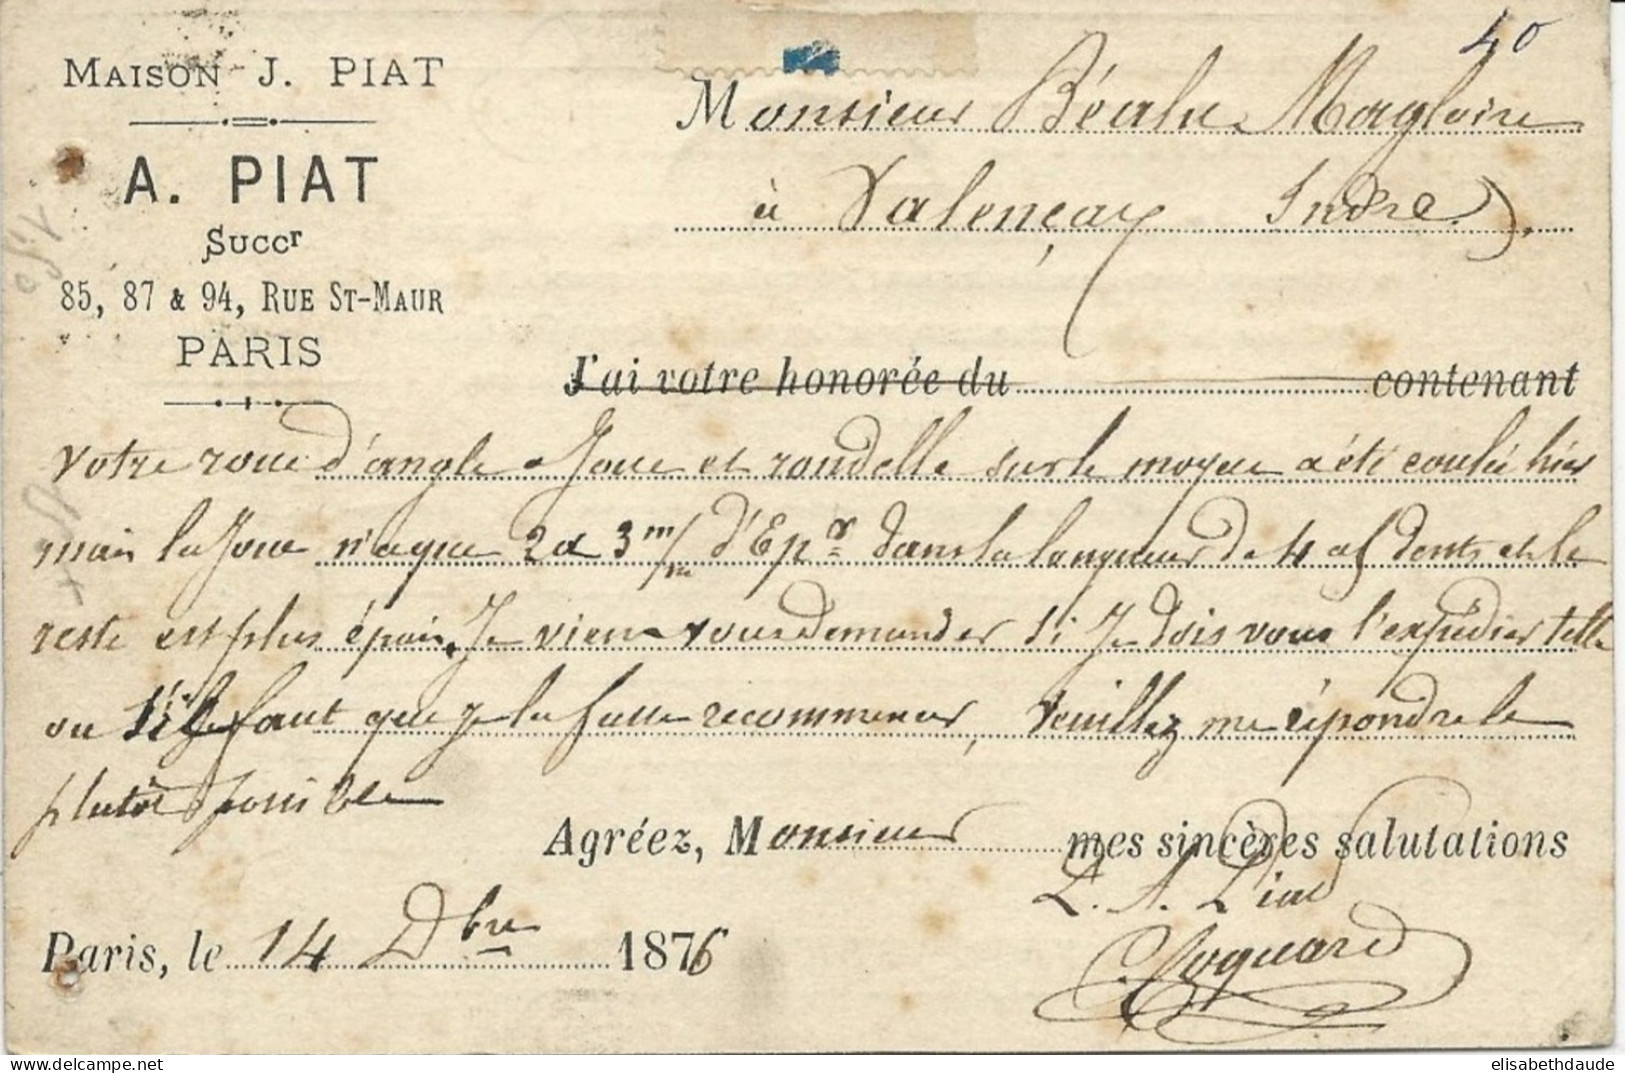 40
MAISON J. PIAT
A. PIAT
Succr
85, 87 & 94, RUE ST-MAUR
PARIS
Monsieur Béalu Magloire
à Valençay Indre.
J'ai votre honorée du contenant
votre roue d'angle a Joue et rondelle sur le moyeu a été coulé hier
mais la Joue n'a que 2 à 3 m/m d'Epr dans la longueur de 4 a 5 dents et le
reste est plus épais. Je viens vous demander si Je dois vous l'expédier telle
ou s'il faut que je la fasse recommencer, veuillez me répondre le
plutôt possible
Agréez, Monsieur mes sincères salutations
P. A. Piat
Paris, le 14 Dbre 1876
elisabethdaude